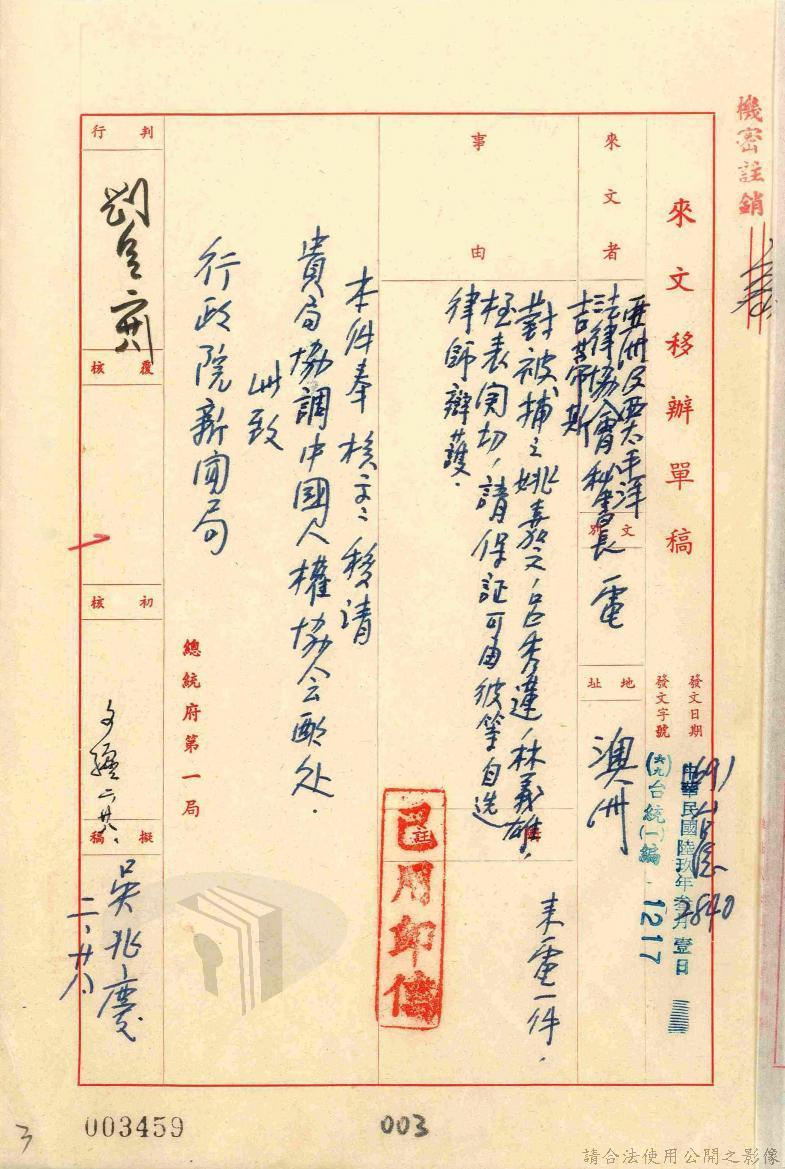 機密註銷
來文移辦單稿
發文日期
中華民國陸玖年叁月壹日
發文字號
(六九)台統(一)編
1217
2840
來文者
亞洲及西太平洋
法律協會秘書長
吉蒂斯
文別
電
地址
澳州
事由
對被捕之姚嘉文,呂秀蓮,林義雄,
極表関切,請保証可由彼等自选
律師辯護.
註
來電一件.
已用印信
本件奉核交移請
貴局協調中國人權協会酌处.
此致
行政院新闻局
總統府第一局
判行
覆核
初核
擬稿
吳兆慶
二、廿八
003459
003
3
請合法使用公開之影像